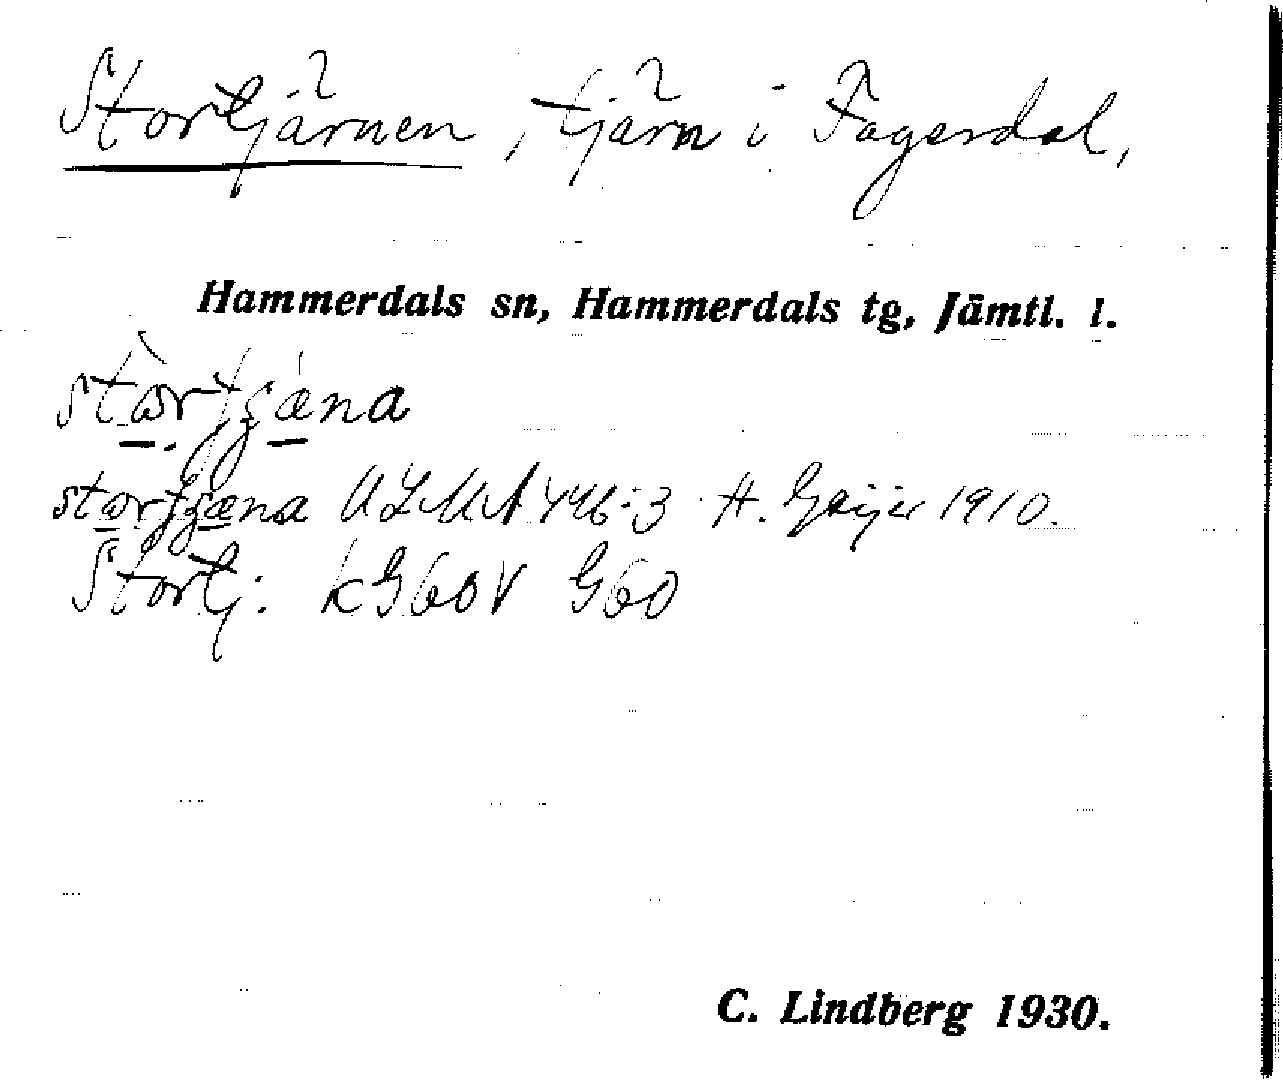 Stortjärnen, tjärn i Fagerdal,
Hammerdals sn, Hammerdals tg, Jämtl. l.
ULMA 446:3 H. Geijer 1910.
Stortj: kG60V G60
C. Lindberg 1930.